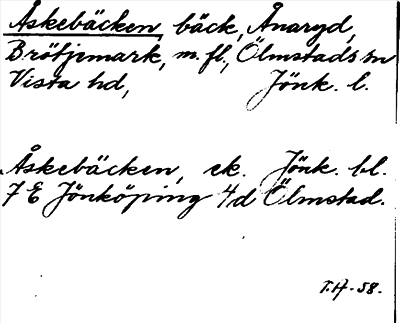 Åskebäcken, bäck, Ånaryd,
Brötjemark, m. fl., Ölmstads sn
Vista hd, Jönk. l.
Åskebäcken, ek. Jönk. bl.
7 E Jönköping 4d Ölmstad.
T.H-58.